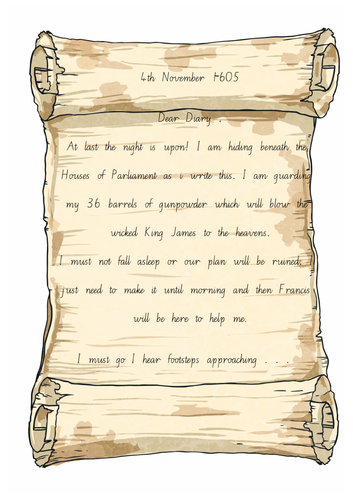 4th November 1605
Dear Diary ,
At last the night is upon! I am hiding beneath the
Houses of Parliament as i write this. I am guarding
my 36 barrels of gunpowder which will blow the
wicked King James to the heavens.
I must not fall asleep or our plan will be ruined, I
just need to make it until morning and then Francis
will be here to help me.
I must go I hear footsteps approaching . . .